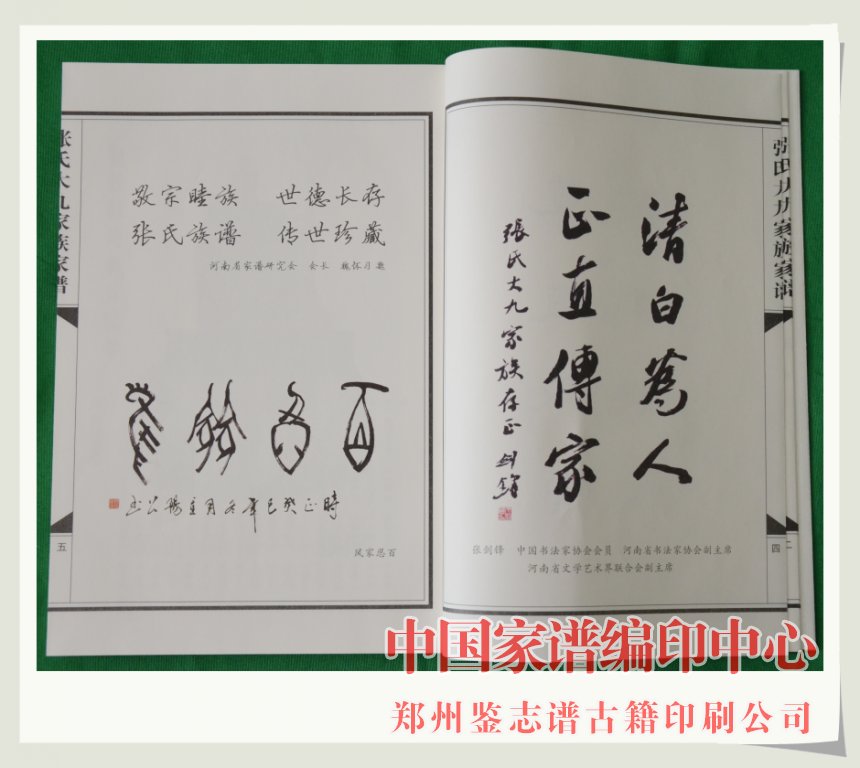 张氏大九家族家谱
清白為人
正直傳家
張氏大九家族存正 剑鋒
张剑锋 中国书法家协会会员 河南省书法家协会副主席
河南省文学艺术界联合会副主席
四
二
敬宗睦族 世德长存
张氏族谱 传世珍藏
河南省家谱研究会 会长 魏怀习题
時正癸巳年冬月
张氏大九家族家谱
五
中国家谱编印中心
郑州鉴志谱古籍印刷公司